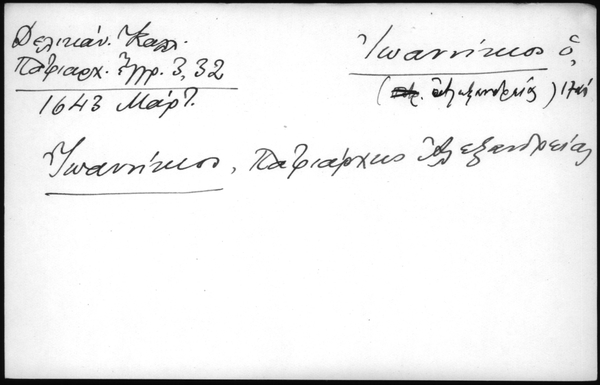 Δελικάν. Καλλ.
Πατριαρχ. Ἔγγρ. 3, 32
1643 Μάρτ.
Ἰωαννίκιος ὁ,
(πατρ. Ἀλεξανδρείας)
Ἰωαννίκιος, Πατριάρχης Ἀλεξανδρείας